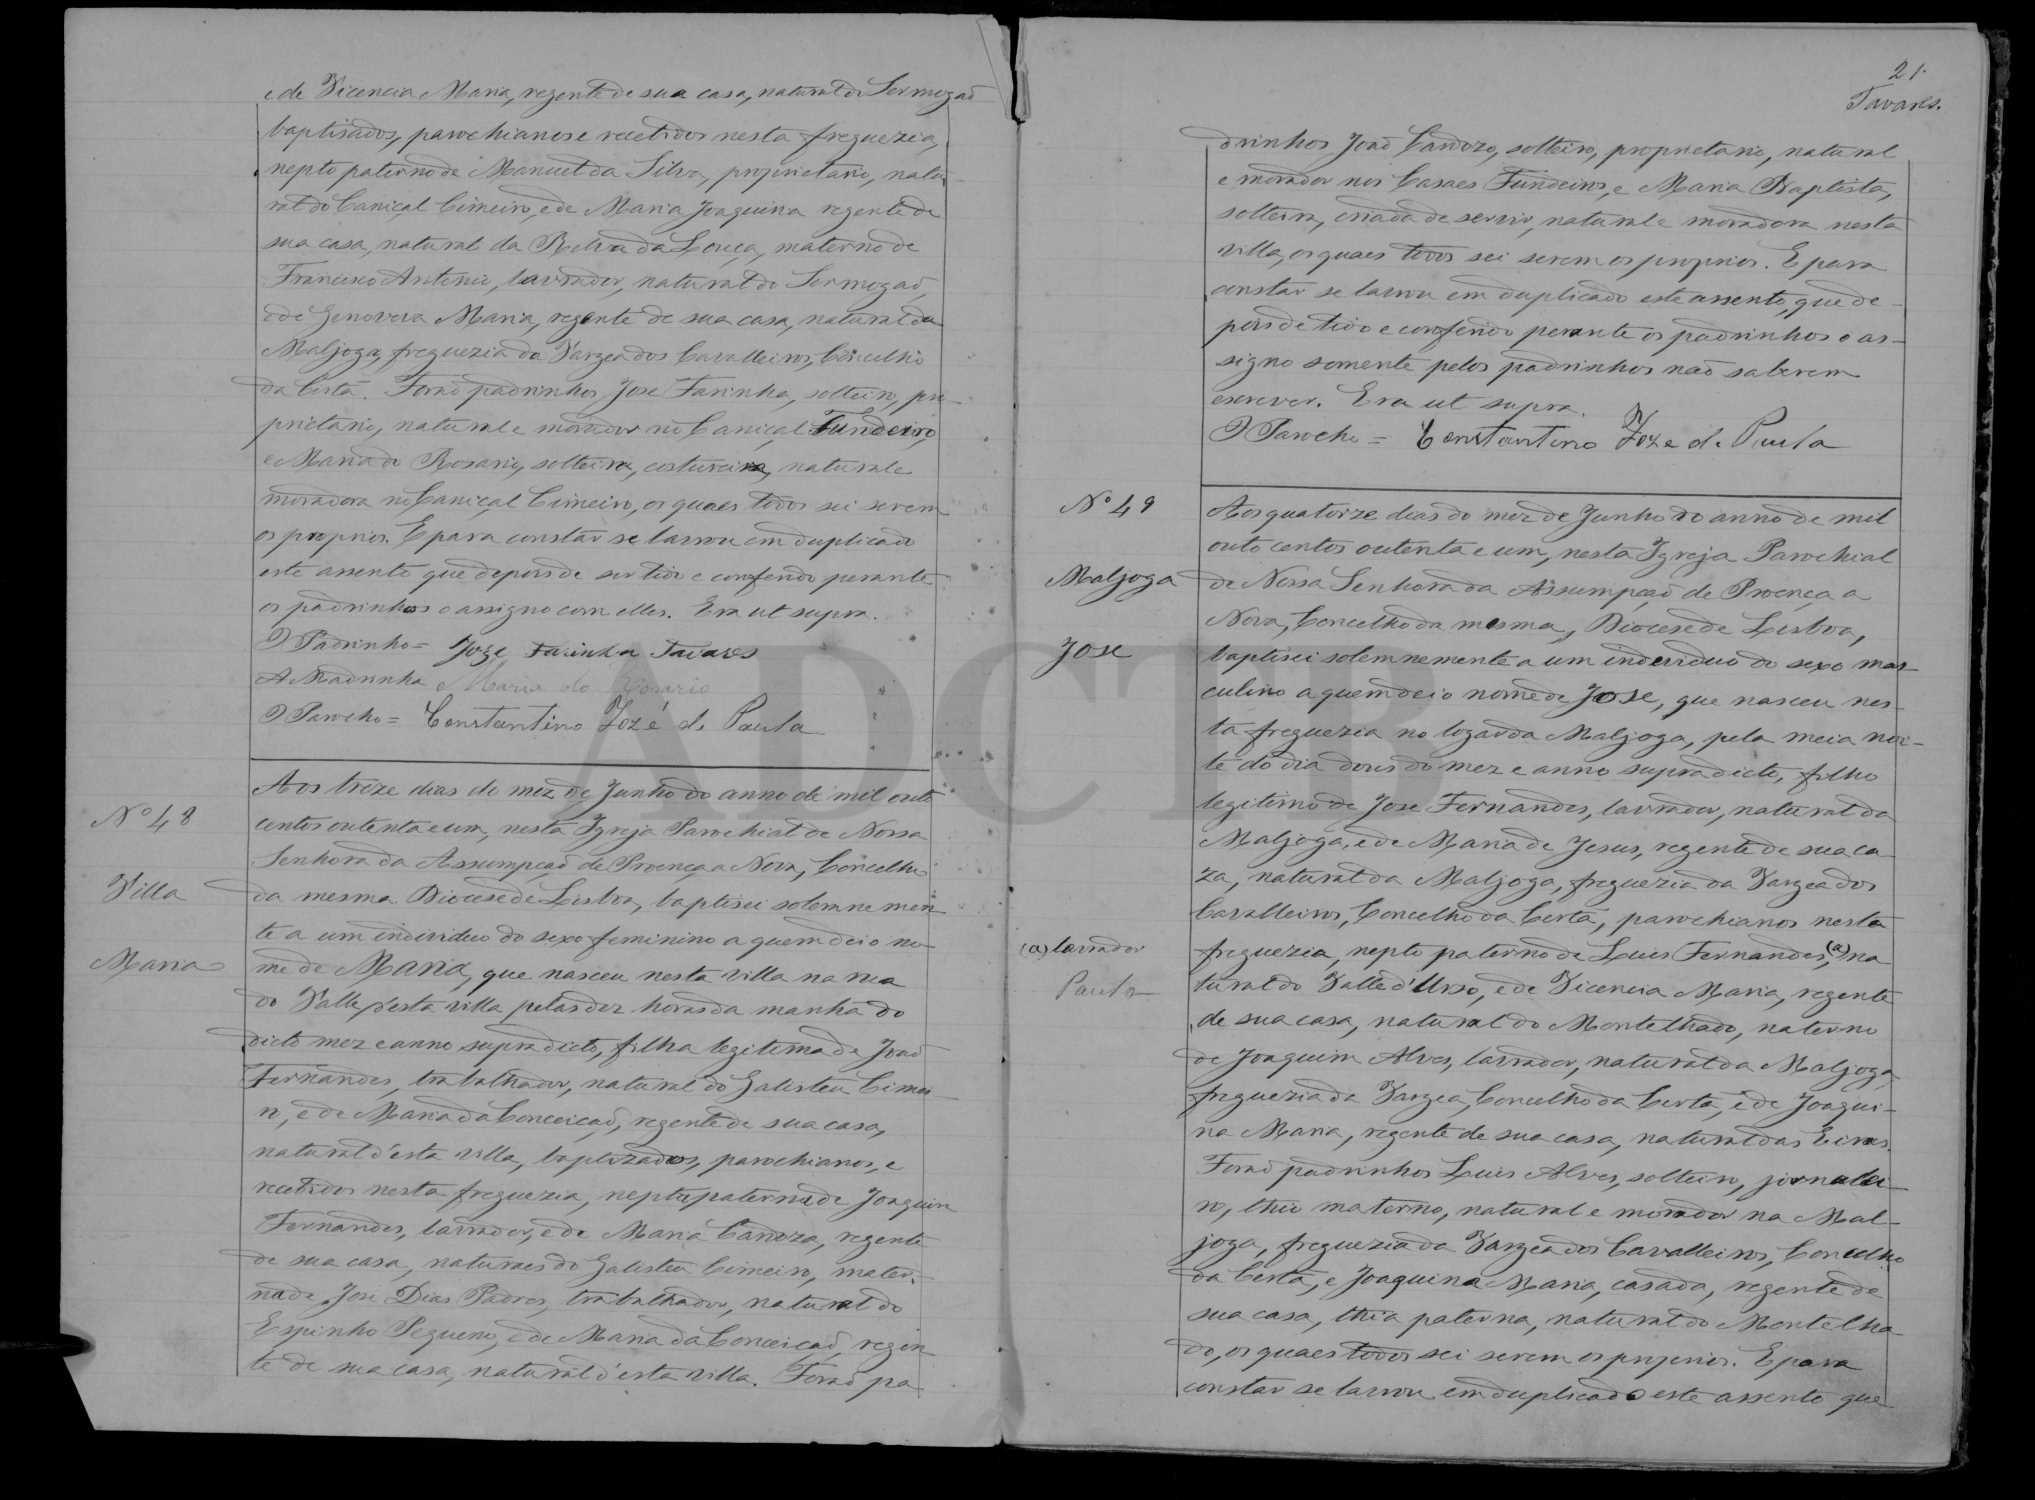 e de Vicencia Maria, regente de sua casa, natural do Sormogaõ
baptisados, parochianos e recebidos nesta freguezia,
nepto paterno de Manuel da Silva, proprietario, natu-
ral do Caniçal Cimeiro, e de Maria Joaquina regente de
sua casa, natural da Relva da Louça, materno de
Francisco Antonio, lavrador, natural do Sormogaõ,
e de Genoveva Maria, regente de sua casa, natural da
Maljoga, freguezia da Varzea dos Cavalleiros, Concelho
da Certã. Foraõ padrinhos, Jose Farinha, solteiro, pro-
prietario, natural e morador no Caniçal Fundeiro,
e Maria do Rosario, solteira, costureira, natural e
moradora no Caniçal Cimeiro, os quaes todos sei serem
os proprios. E para constar se lavrou em duplicado
este assento que depois de ser lido e conferido perante
os padrinhos o assigno com elles. Era ut supra.
O Padrinho = Joze Farinha Tavares
A Madrinha Maria do Rosario
O Parocho = Constantino Jozé de Paula
Nº 48
Villa
Maria
Aos treze dias do mez de Junho do anno de mil outo
centos outenta e um, nesta Igreja Parochial de Nossa
Senhora da Assumpçaõ de Proença a Nova, Concelho
da mesma Diocese de Lisboa, baptisei solemnemen
te a um individuo do sexo feminino a quem dei o no-
me de Maria, que nasceu nesta villa na rua
do Valle d'esta villa pelas dez horas da manhã do
dicto mez e anno supradicto, filha legitima de Joaõ
Fernandes, trabalhador, natural do Galisteu Cimei-
ro, e de Maria da Conceiçaõ, regente de sua casa,
natural d'esta villa, baptizados, parochianos, e
recebidos nesta freguezia, nepta paterna de Joaquim
Fernandes, lavrador, e de Maria Cardoza, regente
de sua casa, naturaes do Galisteu Cimeiro, mater-
na de José Dias Padres, trabalhador, natural do
Espinho Pequeno, e de Maria da Conceiçaõ, regen
te de sua casa, natural d'esta villa. Foraõ pa
21.
Tavares.
drinhos Joaõ Cardozo, solteiro, proprietario, natural
e morador nos Casaes Fundeiros, e Maria Baptista,
solteira, criada de servir, natural e moradora nesta
villa, os quaes todos sei serem os proprios. E para
constar se lavrou em duplicado este assento, que de-
pois de lido e conferido perante os padrinhos o as-
signo somente pelos padrinhos naõ saberem
escrever. Era ut supra.
O Parocho = Constantino Joze de Paula
Nº 49
Maljoga
Jose
(a) lavrador
Paula
Aos quatorze dias do mez de Junho do anno de mil
outo centos outenta e um, nesta Igreja Parochial
de Nossa Senhora da Assumpçaõ de Proença a
Nova, Concelho da mesma, Diocese de Lisboa,
baptisei solemnemente a um individuo do sexo mas-
culino a quem dei o nome de Jose, que nasceu nes-
ta freguezia no logar da Maljoga, pela meia noi-
te do dia dous do mez e anno supradicto, filho
legitimo de Jose Fernandes, lavrador, natural da
Maljoga, e de Maria de Jesus, regente de sua ca
za, natural da Maljoga, freguezia da Varzea dos
Cavalleiros, Concelho da Certã, parochianos nesta
freguezia, nepto paterno de Luis Fernandes, (a) na
tural do Valle d'Urso, e de Vicencia Maria, regente
de sua casa, natural do Montelhado, materno
de Joaquim Alves, lavrador, natural da Maljoga,
freguezia da Varzea, Concelho da Certã, e de Joaqui-
na Maria, regente de sua casa, natural das Eiras.
Foraõ padrinhos Luis Alves, solteiro, jornalei-
ro, thio materno, natural e morador na Mal-
joga, freguezia da Varzea dos Cavalleiros, Concelho
da Certã, e Joaquina Maria, casada, regente de
sua casa, thia paterna, natural do Montelha
do, os quaes todos sei serem os proprios. E para
constar se lavrou em duplicado este assento que